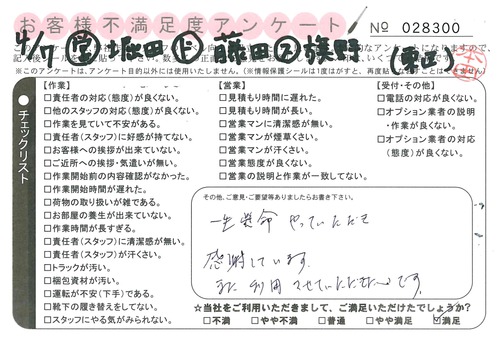 お客様不満足度アンケート
№ 028300
4/7
※このアンケートは、アンケート目的以外には使用いたしません。(※情報保護シールは1度はがすと、再度貼
チェックリスト
【作業】
□責任者の対応(態度)が良くない。
□他のスタッフの対応(態度)が良くない。
□作業を見ていて不安がある。
□責任者(スタッフ)に好感が持てない。
□お客様への挨拶が出来ていない。
□ご近所への挨拶・気遣いが無い。
□作業開始前の内容確認がなかった。
□作業開始時間が遅れた。
□荷物の取り扱いが雑である。
□お部屋の養生が出来ていない。
□作業時間が長すぎる。
□責任者(スタッフ)に清潔感が無い。
□責任者(スタッフ)が汗くさい。
□トラックが汚い。
□梱包資材が汚い。
□運転が不安(下手)である。
□靴下の履き替えをしてない。
□スタッフにやる気がみられない。
【営業】
□見積もり時間に遅れた。
□見積もり時間が長い。
□営業マンに清潔感が無い。
□営業マンが煙草くさい。
□営業マンが汗くさい。
□営業態度が良くない。
□営業の説明と作業が一致してない。
【受付・その他】
□電話の対応が良くない。
□オプション業者の説明
・作業が良くない。
□オプション業者の対応
(態度)が良くない。
その他、ご意見・ご要望等ありましたらお書き下さい。
一生懸命 やっていただき
感謝しています。
また 利用 させていただきたいです。
☆当社をご利用いただきまして、ご満足いただけたでしょうか?
□不満 □やや不満 □普通 □やや満足 ☑満足